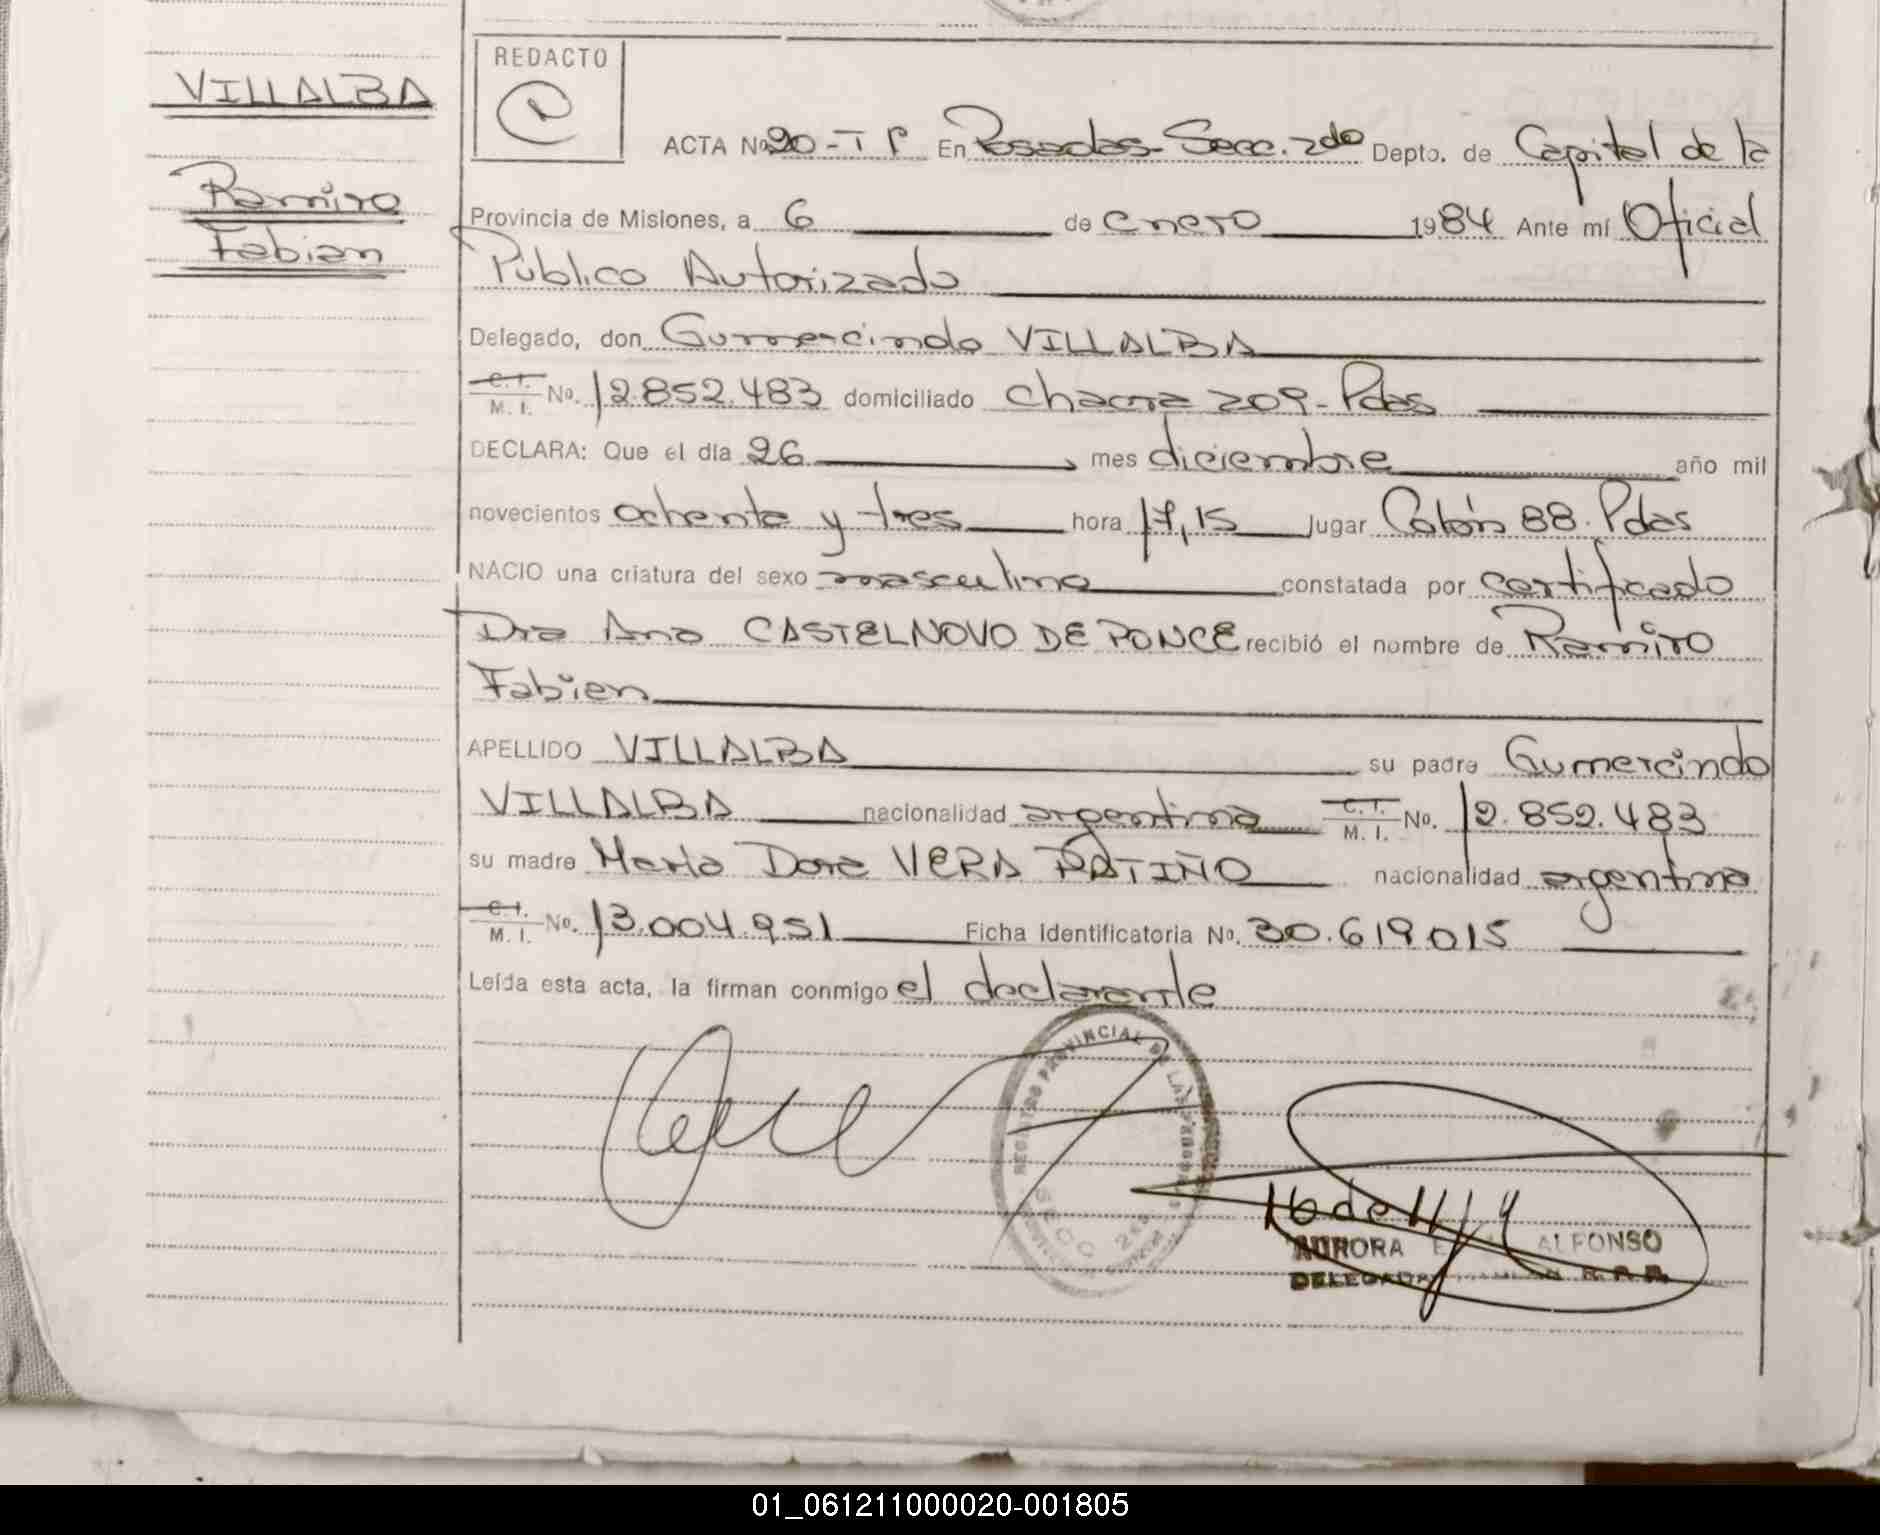 VILLALBA
Ramiro
Fabian
REDACTO
ACTA Nº 20-TP En Posadas-Secc. 2do Depto. de Capital de la
Provincia de Misiones, a 6 de enero 1984 Ante mí Oficial
Público Autorizado
Delegado, don Gumercindo VILLALBA
C. I. M. I. No. 12.852.483 domiciliado Chacra 209-Pdas
DECLARA: Que el día 26 mes diciembre año mil
novecientos ochenta y tres hora 17,15 lugar Colón 88. Pdas
NACIO una criatura del sexo masculino constatada por certificado
Dra Ana CASTELNOVO DE PONCE recibió el nombre de Ramiro
Fabien
APELLIDO VILLALBA su padre Gumercindo
VILLALBA nacionalidad argentina C. I. M. I. No. 12.852.483
su madre Marta Dora VERA PATIÑO nacionalidad argentina
C. I. M. I. No. 13.004.951 Ficha Identificatoria No. 30.619.015
Leída esta acta, la firman conmigo el declarante
REGISTRO PROVINCIAL DE LAS PERSONAS
SECC 2
AURORA E ALFONSO
DELEGADA
01_061211000020-001805